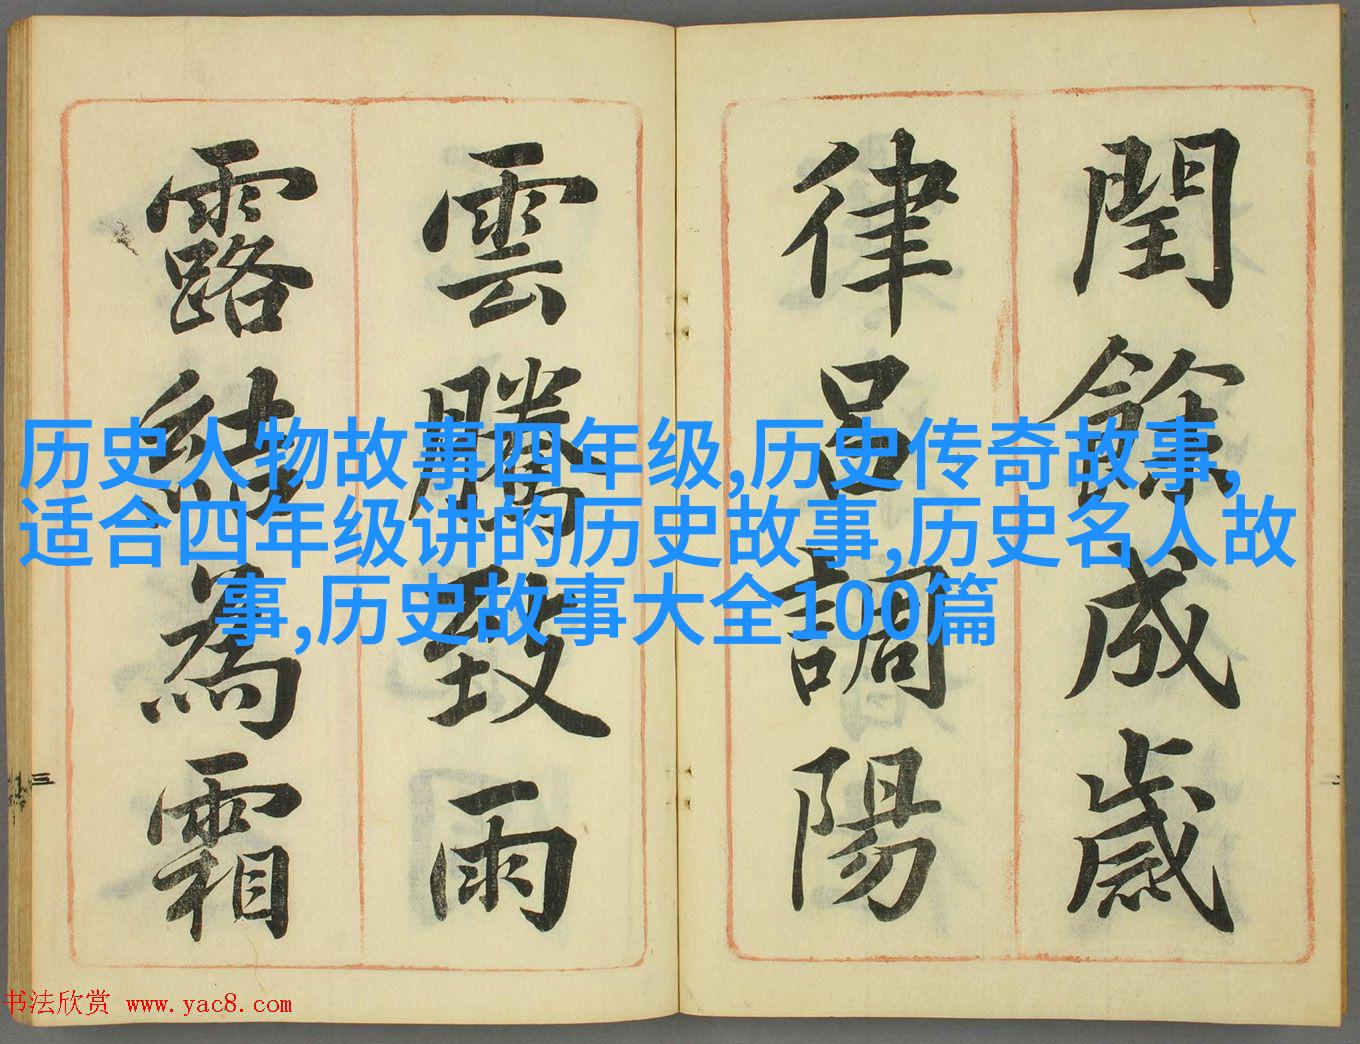 閏餘成歲
律呂調陽
雲騰致雨
露結為霜
历史人物故事四年级,历史传奇故事,
适合四年级讲的历史故事,历史名人故
事,历史故事大全100篇
三
二
书法欣赏 www.yac8.com